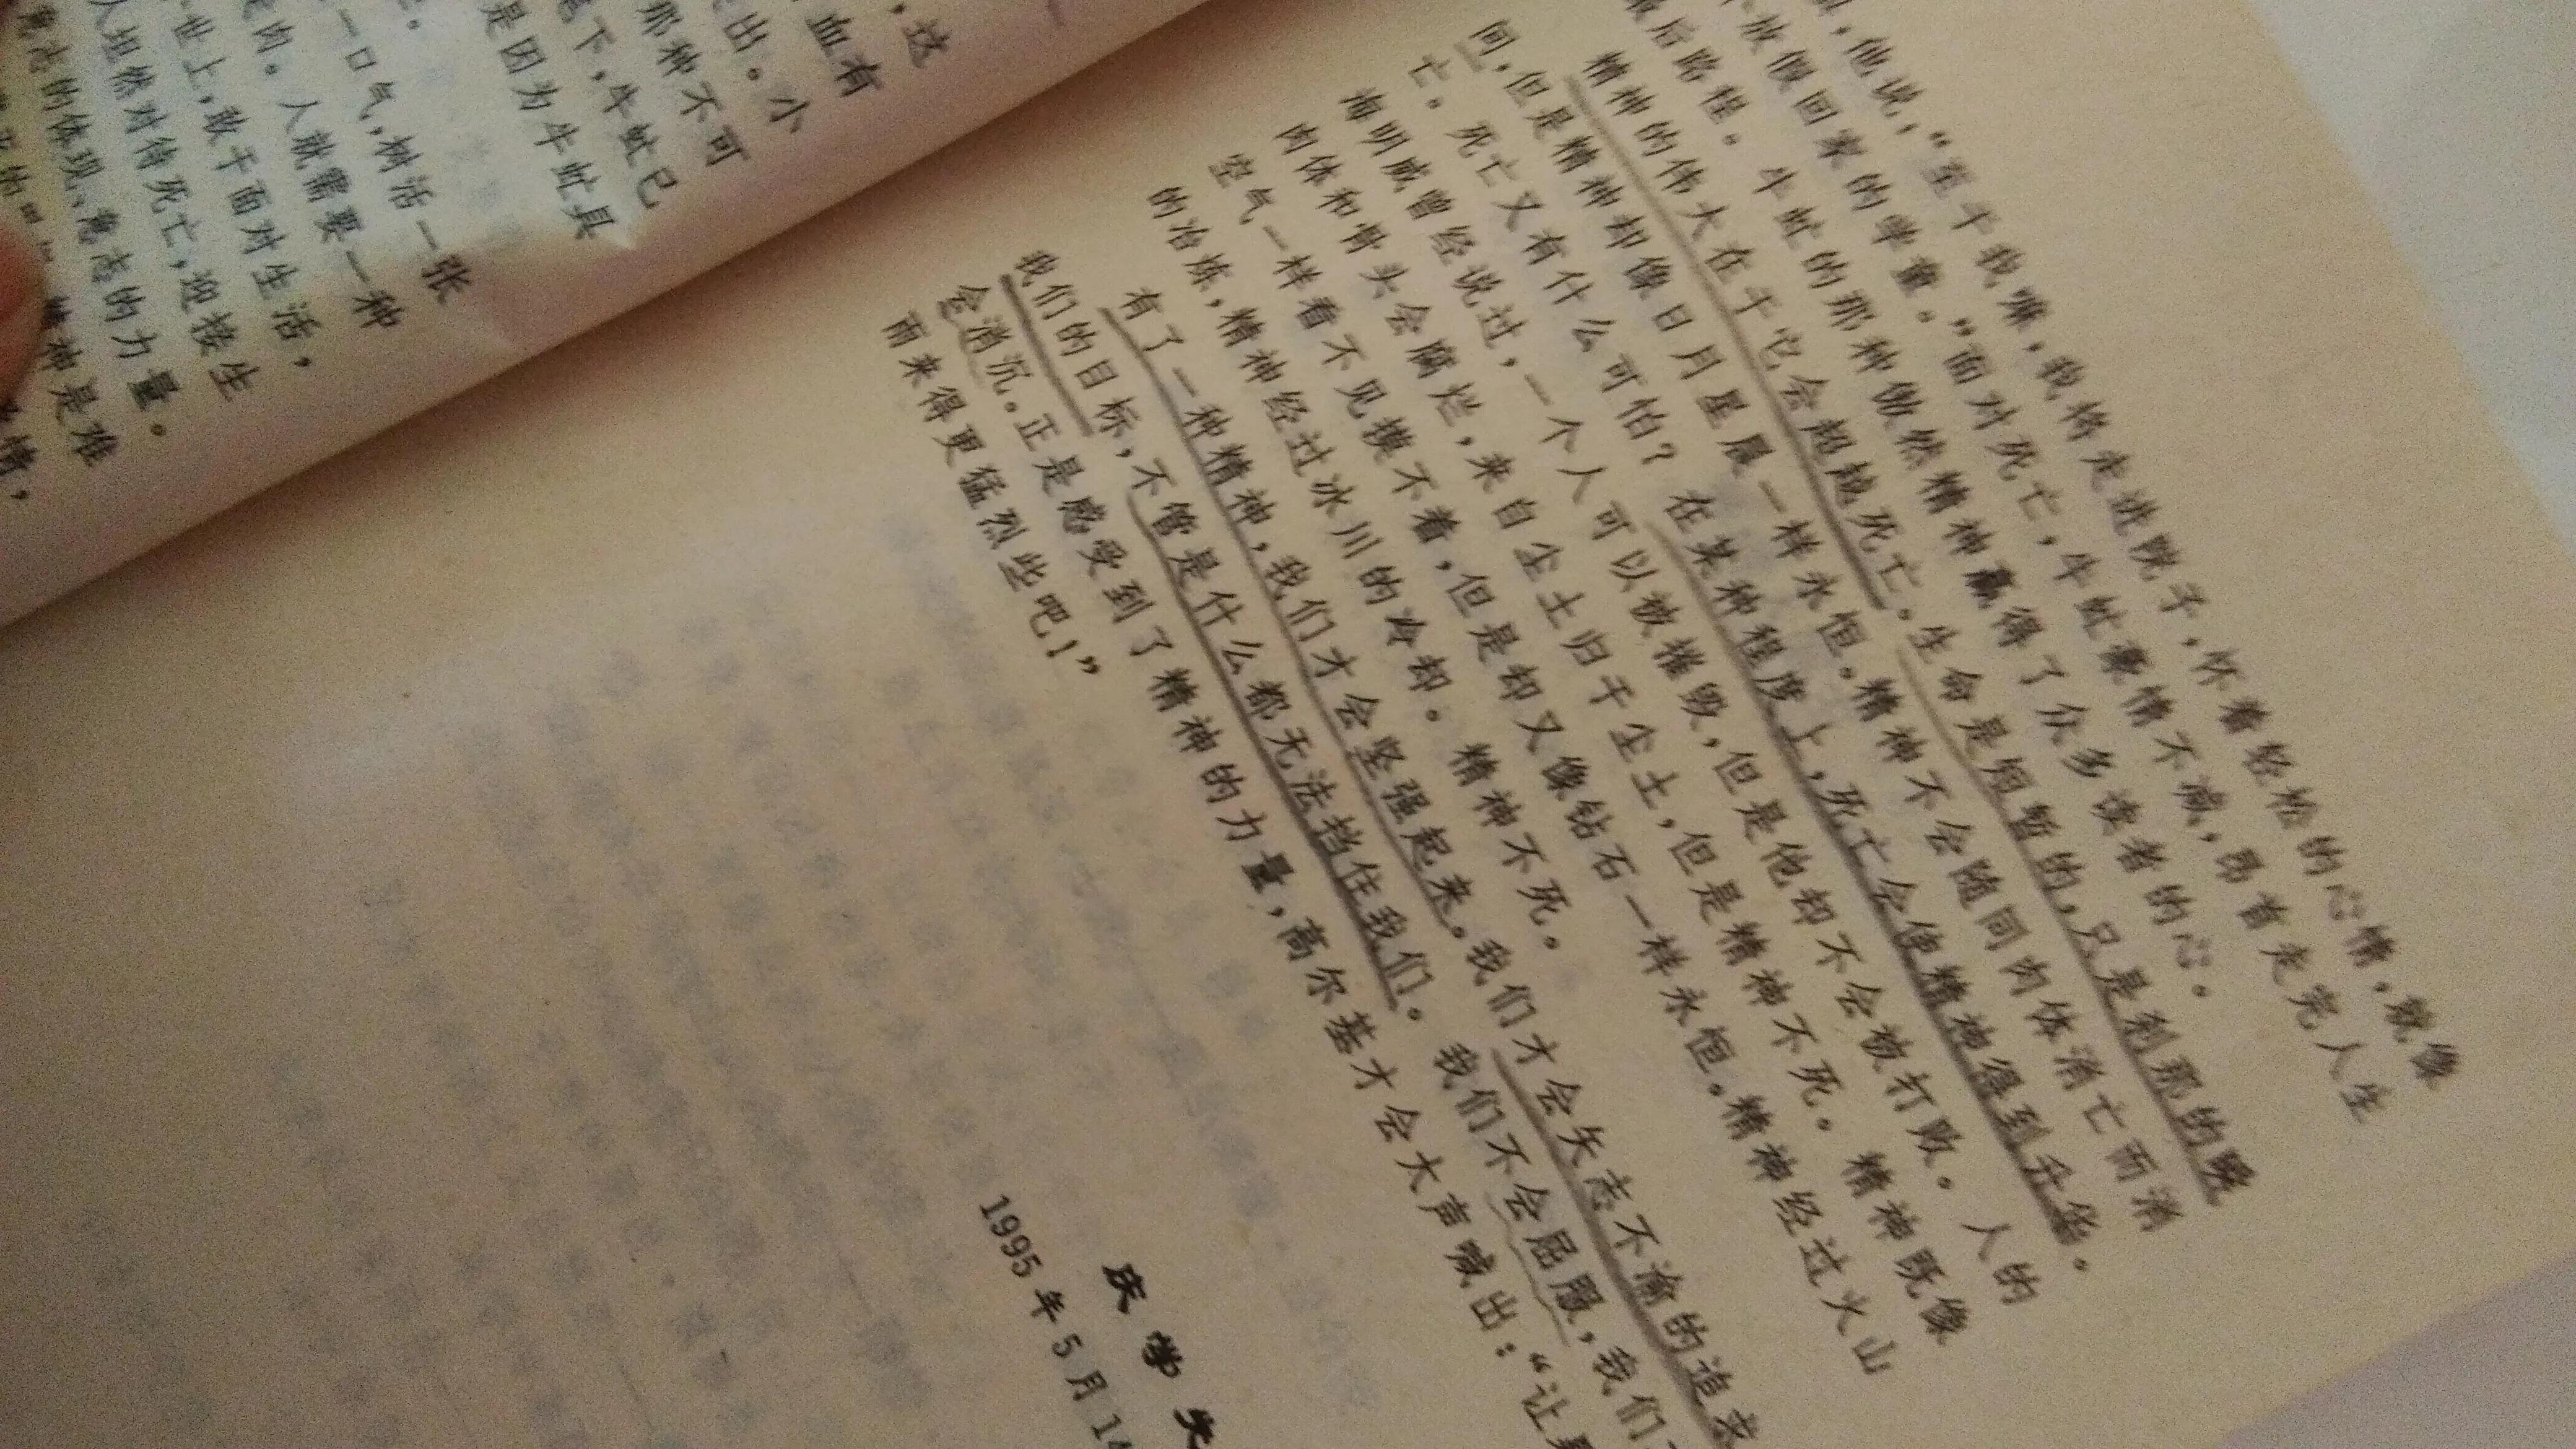 ，这
血有
出。小
那种不可
下，牛虻已
是因为牛虻具
一口气，树活一张
肉。人就需要一种
世上，敢于面对生活，
人坦然对待死亡，迎接生
的体现、意志的力量。
神是难
情，
，他说，“至于我嘛，我将走进院子，怀着轻松的心情，就像
放假回家的学童。”面对死亡，牛虻豪情不减，昂首走完人生
最后路程。牛虻的那种傲然精神赢得了众多读者的心。
精神的伟大在于它会超越死亡。生命是短暂的，只是刹那的瞬
间，但是精神却像日月星晨一样永恒。精神不会随同肉体消亡而消
亡。死亡又有什么可怕？在某种程度上，死亡会使精神得到升华。
海明威曾经说过，一个人可以被摧毁，但是他却不会被打败。人的
肉体和骨头会腐烂，来自尘土归于尘土，但是精神不死。精神既像
空气一样看不见摸不着，但是却又像钻石一样永恒。精神经过火山
的冶炼，精神经过冰川的冷却。精神不死。
有了一种精神，我们才会坚强起来。我们才会矢志不渝的追求
我们的目标，不管是什么都无法挡住我们。我们不会屈服，我们
会消沉。正是感受到了精神的力量，高尔基才会大声喊出：“让
雨来得更猛烈些吧！”
庆学先
1995年5月14